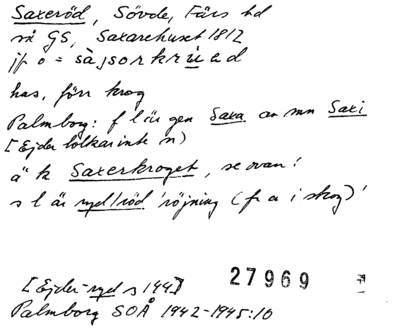 Saxeröd, Sövde, Färs hd
GS, Saxarehuset 1812
jfr o =
hus, förr krog
Palmborg: f l är gen Saxa av mn Saxi
[Ejder tolkar inte n)
ä k Saxerkroget, se ovan!
s l är ryd/röd 'röjning (fr a i skog)'
[Ejder-ryd s 144]
27969
Palmborg SOÅ 1942-1945:10